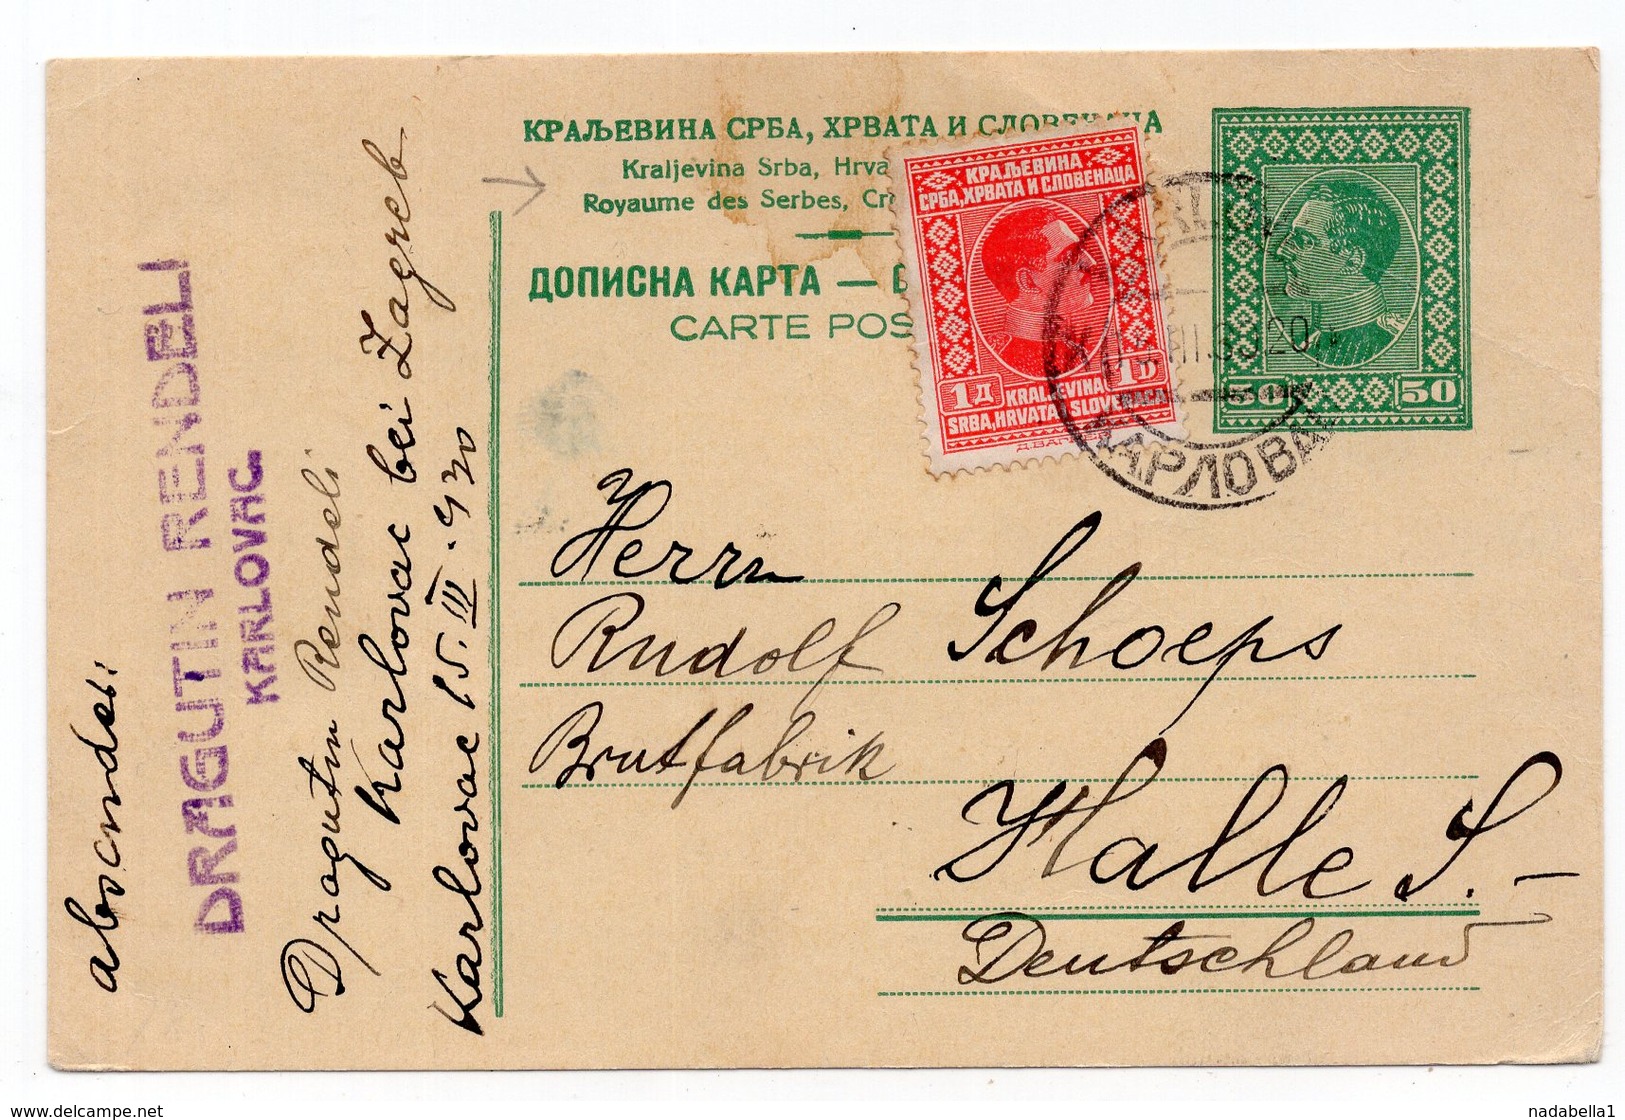 КРАЉЕВИНА СРБА, ХРВАТА И СЛОВЕНАЦА
Kraljevina Srba, Hrva
Royaume des Serbes, Cr
ДОПИСНА КАРТА —
CARTE POS
КРАЉЕВИНА
СРБА, ХРВАТА И СЛОВЕНАЦА
1Д 1D
KRALJEVINA
SRBA, HRVATA I SLOVENACA
50 50
КАРЛОВАЦ
absender:
DRAGUTIN RENDELI
KARLOVAC
Dragutin Rendeli
Karlovac bei Zagreb
Karlovac 15. III. 930
Herrn
Rudolf Schoeps
Brutfabrik
Halle S. —
Deutschland
delcampe.net
nadabella1